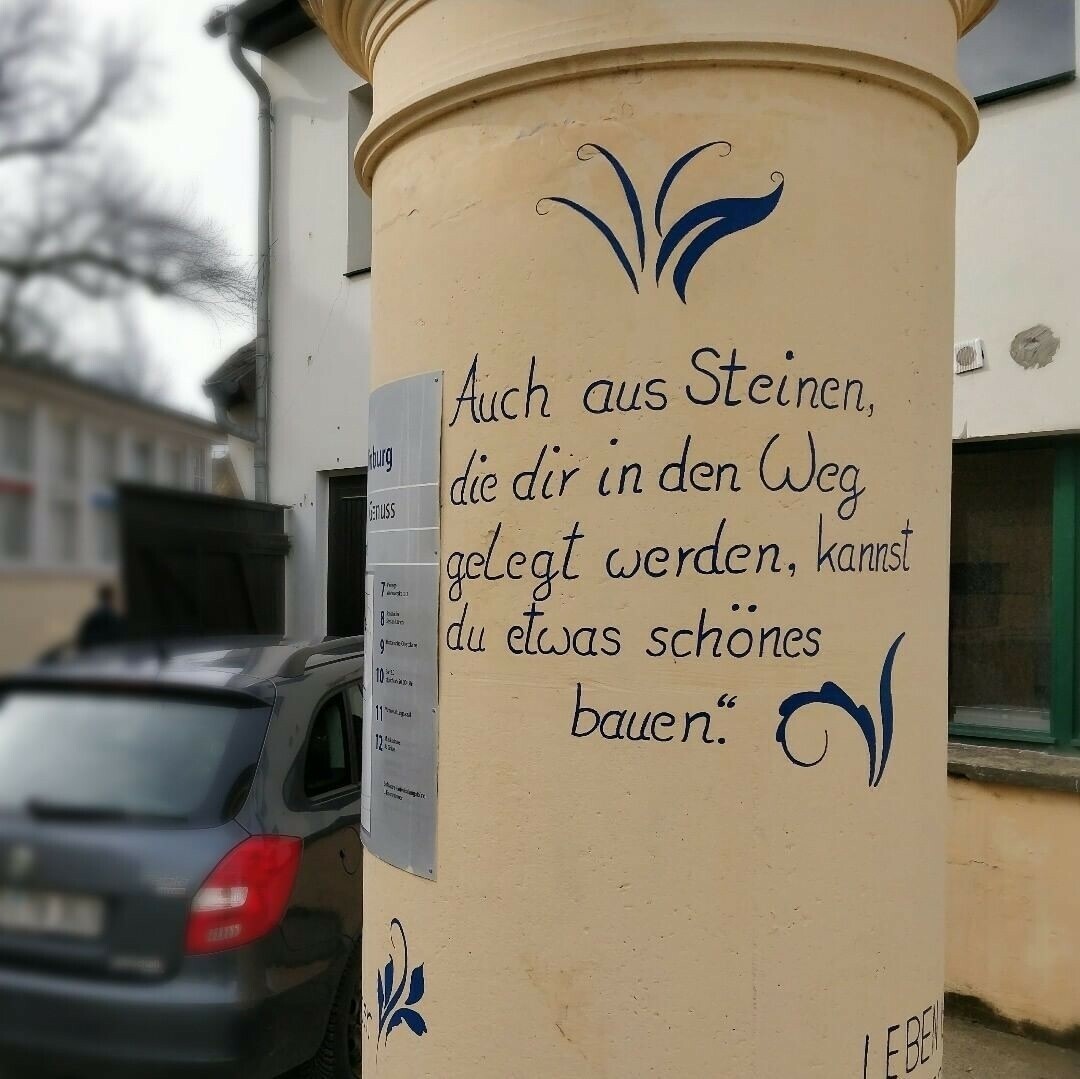 Auch aus Steinen,
die dir in den Weg
gelegt werden, kannst
du etwas schönes
bauen.“
burg
Genuss
7
8
9
10
11
12
LEBEN